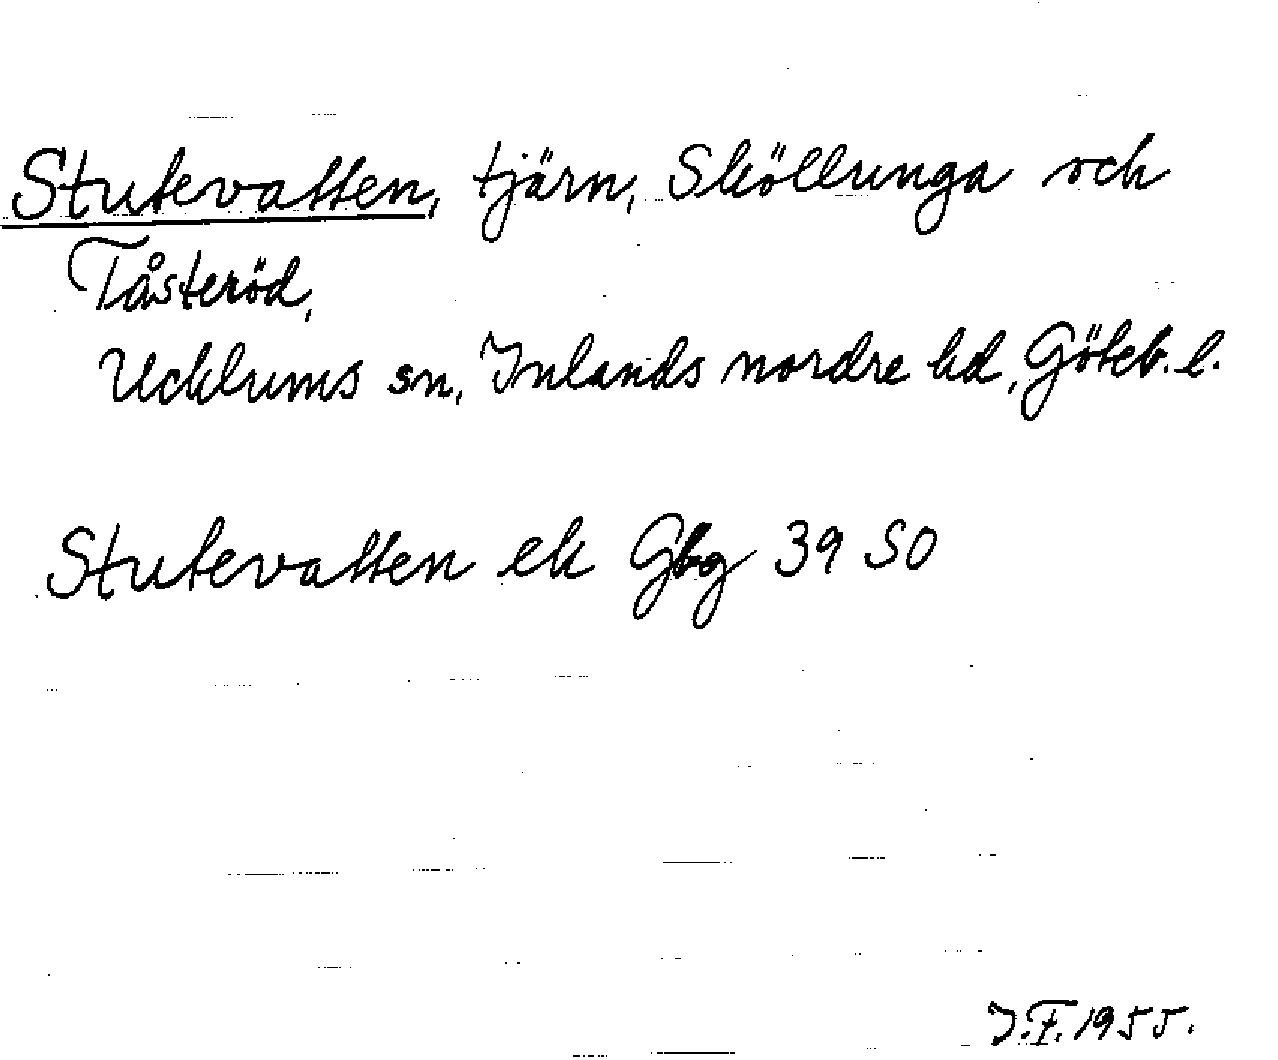 Stutevatten, tjärn, Sköllunga och
Tåsteröd,
Ucklums sn, Inlands nordre hd, Göteb. l.
Stutevatten ek Gbg 39 SO
J.F. 1955.